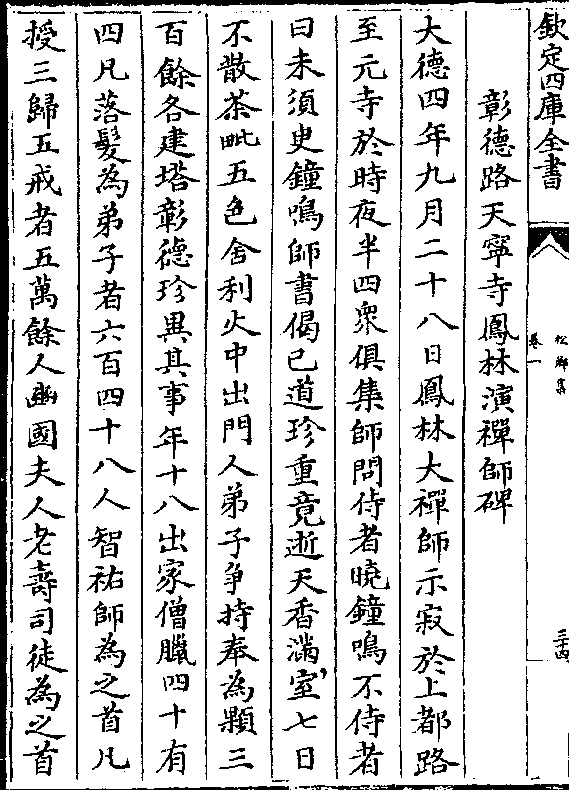 欽定四庫全書
松鄉集
卷一
三十四
彰德路天寧寺鳳林演禪師碑
大德四年九月二十八日鳳林大禪師示寂於上都路
至元寺於時夜半四衆俱集師問侍者曉鐘鳴不侍者
曰未須史鐘鳴師書偈已道珍重竟逝天香滿室七日
不散茶毗五色舍利火中出門人弟子爭持奉為顆三
百餘各建塔彰德珍異其事年十八出家僧臘四十有
四凡落髮為弟子者六百四十八人智祐師為之首凡
授三歸五戒者五萬餘人豳國夫人老壽司徒為之首